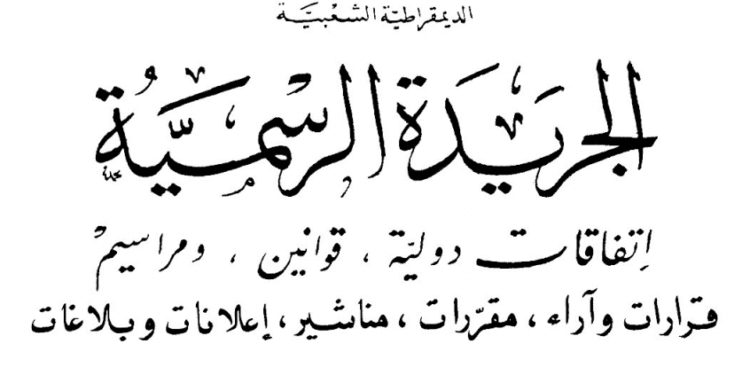 الديمقراطيّة الشعبيّة
الجريدة الرسميّة
إتفاقات دوليّة ، قوانين ، ومراسيم
قرارات وآراء ، مقرّرات ، مناشير ، إعلانات وبلاغات